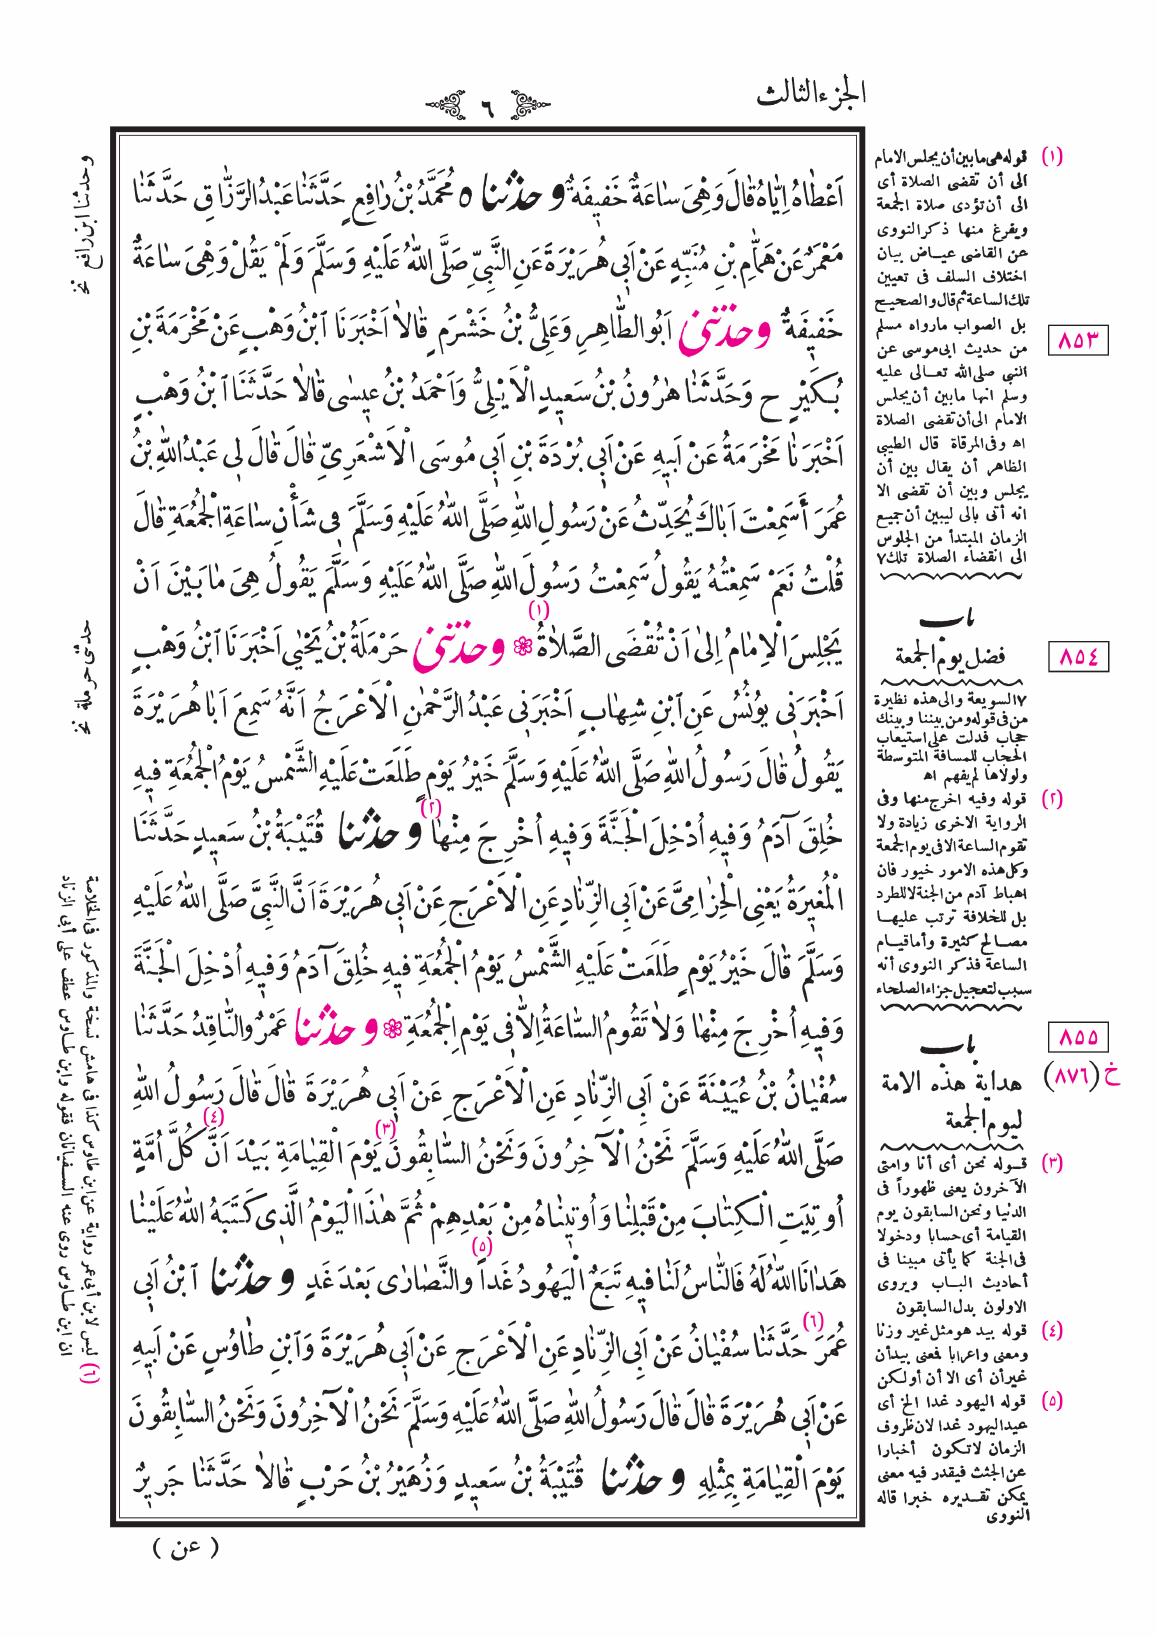 الجزء الثالث
٦
اَعْطَاهُ اِيَّاهُ قَالَ وَهِىَ سَاعَةٌ خَفِيفَةٌ وحدثنا ٥ مُحَمَّدُ بْنُ رَافِعٍ حَدَّثَنَا عَبْدُ الرَّزَّاقِ حَدَّثَنَا
مَعْمَرٌ عَنْ هَمَّامِ بْنِ مُنَبِّهٍ عَنْ اَبِى هُرَيْرَةَ عَنِ النَّبِىِّ صَلَّى اللهُ عَلَيْهِ وَسَلَّمَ وَلَمْ يَقُلْ وَهِىَ سَاعَةٌ
خَفِيفَةٌ وحدثنى اَبُو الطَّاهِرِ وَعَلِىُّ بْنُ خَشْرَمٍ قَالَا اَخْبَرَنَا ابْنُ وَهْبٍ عَنْ مَخْرَمَةَ بْنِ
بُكَيْرٍ ح وَحَدَّثَنَا هَارُونُ بْنُ سَعِيدٍ الْاَيْلِىُّ وَاَحْمَدُ بْنُ عِيسَى قَالَا حَدَّثَنَا ابْنُ وَهْبٍ
اَخْبَرَنَا مَخْرَمَةُ عَنْ اَبِيهِ عَنْ اَبِى بُرْدَةَ بْنِ اَبِى مُوسَى الْاَشْعَرِىِّ قَالَ قَالَ لِى عَبْدُ اللهِ بْنُ
عُمَرَ أَسَمِعْتَ اَبَاكَ يُحَدِّثُ عَنْ رَسُولِ اللهِ صَلَّى اللهُ عَلَيْهِ وَسَلَّمَ فِى شَأْنِ سَاعَةِ الْجُمُعَةِ قَالَ
قُلْتُ نَعَمْ سَمِعْتُهُ يَقُولُ سَمِعْتُ رَسُولَ اللهِ صَلَّى اللهُ عَلَيْهِ وَسَلَّمَ يَقُولُ هِىَ مَا بَيْنَ اَنْ
يَجْلِسَ الْاِمَامُ اِلَى اَنْ تُقْضَى الصَّلَاةُ (١) وحدثنى حَرْمَلَةُ بْنُ يَحْيَى اَخْبَرَنَا ابْنُ وَهْبٍ
اَخْبَرَنِى يُونُسُ عَنِ ابْنِ شِهَابٍ اَخْبَرَنِى عَبْدُ الرَّحْمٰنِ الْاَعْرَجُ اَنَّهُ سَمِعَ اَبَا هُرَيْرَةَ
يَقُولُ قَالَ رَسُولُ اللهِ صَلَّى اللهُ عَلَيْهِ وَسَلَّمَ خَيْرُ يَوْمٍ طَلَعَتْ عَلَيْهِ الشَّمْسُ يَوْمُ الْجُمُعَةِ فِيهِ
خُلِقَ آدَمُ وَفِيهِ اُدْخِلَ الْجَنَّةَ وَفِيهِ اُخْرِجَ مِنْهَا (٢) وحدثنا قُتَيْبَةُ بْنُ سَعِيدٍ حَدَّثَنَا
الْمُغِيرَةُ يَعْنِى الْحِزَامِىَّ عَنْ اَبِى الزِّنَادِ عَنِ الْاَعْرَجِ عَنْ اَبِى هُرَيْرَةَ اَنَّ النَّبِىَّ صَلَّى اللهُ عَلَيْهِ
وَسَلَّمَ قَالَ خَيْرُ يَوْمٍ طَلَعَتْ عَلَيْهِ الشَّمْسُ يَوْمُ الْجُمُعَةِ فِيهِ خُلِقَ آدَمُ وَفِيهِ اُدْخِلَ الْجَنَّةَ
وَفِيهِ اُخْرِجَ مِنْهَا وَلَا تَقُومُ السَّاعَةُ اِلَّا فِى يَوْمِ الْجُمُعَةِ وحدثنا عَمْرٌو النَّاقِدُ حَدَّثَنَا
سُفْيَانُ بْنُ عُيَيْنَةَ عَنْ اَبِى الزِّنَادِ عَنِ الْاَعْرَجِ عَنْ اَبِى هُرَيْرَةَ قَالَ قَالَ رَسُولُ اللهِ
صَلَّى اللهُ عَلَيْهِ وَسَلَّمَ نَحْنُ الْآخِرُونَ وَنَحْنُ السَّابِقُونَ (٣) يَوْمَ الْقِيَامَةِ بَيْدَ (٤) اَنَّ كُلَّ اُمَّةٍ
اُوتِيَتِ الْكِتَابَ مِنْ قَبْلِنَا وَاُوتِينَاهُ مِنْ بَعْدِهِمْ ثُمَّ هٰذَا الْيَوْمُ الَّذِى كَتَبَهُ اللهُ عَلَيْنَا
هَدَانَا اللهُ لَهُ فَالنَّاسُ لَنَا فِيهِ تَبَعٌ الْيَهُودُ غَداً (٥) وَالنَّصَارَى بَعْدَ غَدٍ وحدثنا ابْنُ اَبِى
عُمَرَ (٦) حَدَّثَنَا سُفْيَانُ عَنْ اَبِى الزِّنَادِ عَنِ الْاَعْرَجِ عَنْ اَبِى هُرَيْرَةَ وَابْنِ طَاوُسٍ عَنْ اَبِيهِ
عَنْ اَبِى هُرَيْرَةَ قَالَ قَالَ رَسُولُ اللهِ صَلَّى اللهُ عَلَيْهِ وَسَلَّمَ نَحْنُ الْآخِرُونَ وَنَحْنُ السَّابِقُونَ
يَوْمَ الْقِيَامَةِ بِمِثْلِهِ وحدثنا قُتَيْبَةُ بْنُ سَعِيدٍ وَزُهَيْرُ بْنُ حَرْبٍ قَالَا حَدَّثَنَا جَرِيرٌ
( عن )
(١) قوله هى ما بين أن يجلس الامام
الى أن تقضى الصلاة أى
الى أن تؤدى صلاة الجمعة
ويفرغ منها ذكر النووى
عن القاضى عياض بيان
اختلاف السلف فى تعيين
تلك الساعة ثم قال والصحيح
بل الصواب مارواه مسلم
من حديث ابى موسى عن
النبى صلى الله تعالى عليه
وسلم انها مابين أن يجلس
الامام الى أن تقضى الصلاة
اه وفى المرقاة قال الطيبى
الظاهر أن يقال بين أن
يجلس وبين أن تقضى الا
انه أتى بالى ليبين أن جميع
الزمان المبتدأ من الجلوس
الى انقضاء الصلاة تلك ٧
٨٥٣
باب
فضل يوم الجمعة
٨٥٤
٧ السويعة والى هذه نظيرة
من فى قوله ومن بيننا وبينك
حجاب فدلت على استيعاب
الحجاب للمسافة المتوسطة
ولولاها لم يفهم اه
(٢) قوله وفيه اخرج منها وفى
الرواية الاخرى زيادة ولا
تقوم الساعة الا فى يوم الجمعة
وكل هذه الامور خيور فان
اهباط آدم من الجنة لا للطرد
بل للخلافة ترتب عليها
مصالح كثيرة وأما قيام
الساعة فذكر النووى أنه
سبب لتعجيل جزاء الصلحاء
٨٥٥
باب
خ (٨٧٦)
هداية هذه الامة
ليوم الجمعة
(٣) قوله نحن أى أنا وامتى
الآخرون يعنى ظهوراً فى
الدنيا ونحن السابقون يوم
القيامة أى حسابا ودخولا
فى الجنة كما يأتى مبينا فى
أحاديث الباب ويروى
الاولون بدل السابقون
(٤) قوله بيد هو مثل غير وزنا
ومعنى واعرابا فمعنى بيد أن
غير أن أى الا أن أو لكن
(٥) قوله اليهود غدا الخ أى
عيد اليهود غدا لان ظروف
الزمان لا تكون أخبارا
عن الجثث فيقدر فيه معنى
يمكن تقديره خبرا قاله
النووى
وحدثنا ابن رافع نخ
حدثنى حرملة نخ
(٦) ليس لابن أبى عمر رواية عن ابن طاوس كذا فى هامش نسخة والمذكور فى الخلاصة
ان ابن طاوس روى عنه السفيانان فقوله وابن طاوس عطف على أبى الزناد